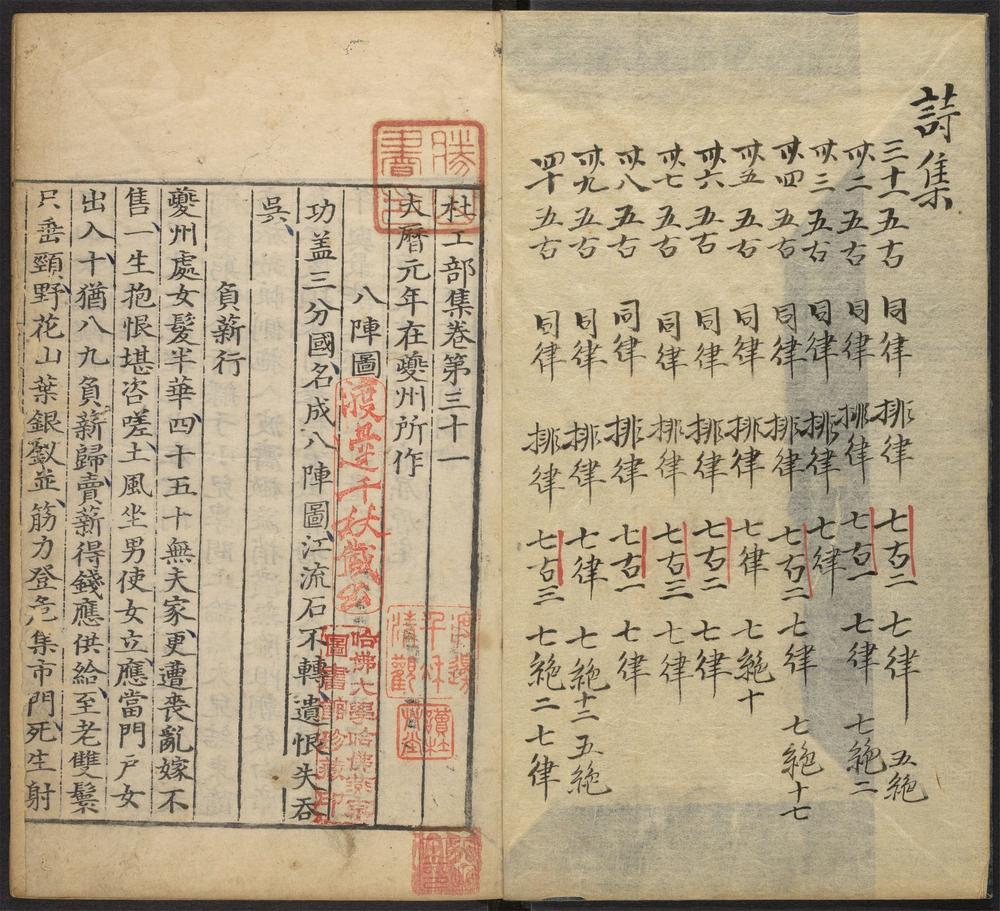 詩集
三十一 五古 同律 排律 七古二 七律 五絶
卅二 五古 同律 排律 七古一 七律 七絶二
卅三 五古 同律 排律 七律
卅四 五古 同律 排律 七古二 七律 七絶十七
卅五 五古 同律 排律 七律 七絶十
卅六 五古 同律 排律 七古二 七律
卅七 五古 同律 排律 七古三 七律
卅八 五古 同律 排律 七古一 七律
卅九 五古 同律 排律 七律 七絶十二 五絶
四十 五古 同律 排律 七古三 七絶二 七律
杜工部集卷第三十一
大曆元年在夔州所作
八陣圖
功盖三分國、名成八陣圖、江流石不轉、遺恨失吞
吳、
負薪行
夔州處女髮半華、四十五十無夫家、更遭喪亂嫁不
售、一生抱恨堪咨嗟、土風坐男使女立、應當門户女
出入、十猶八九負薪歸、賣薪得錢應供給、至老雙鬟
只垂頸、野花山葉銀釵並、筋力登危集市門、死生射
渡邊千秋藏書
哈佛大學哈佛燕京
圖書館珍藏印
渡邊
千秋
清觀
讀杜
艸堂